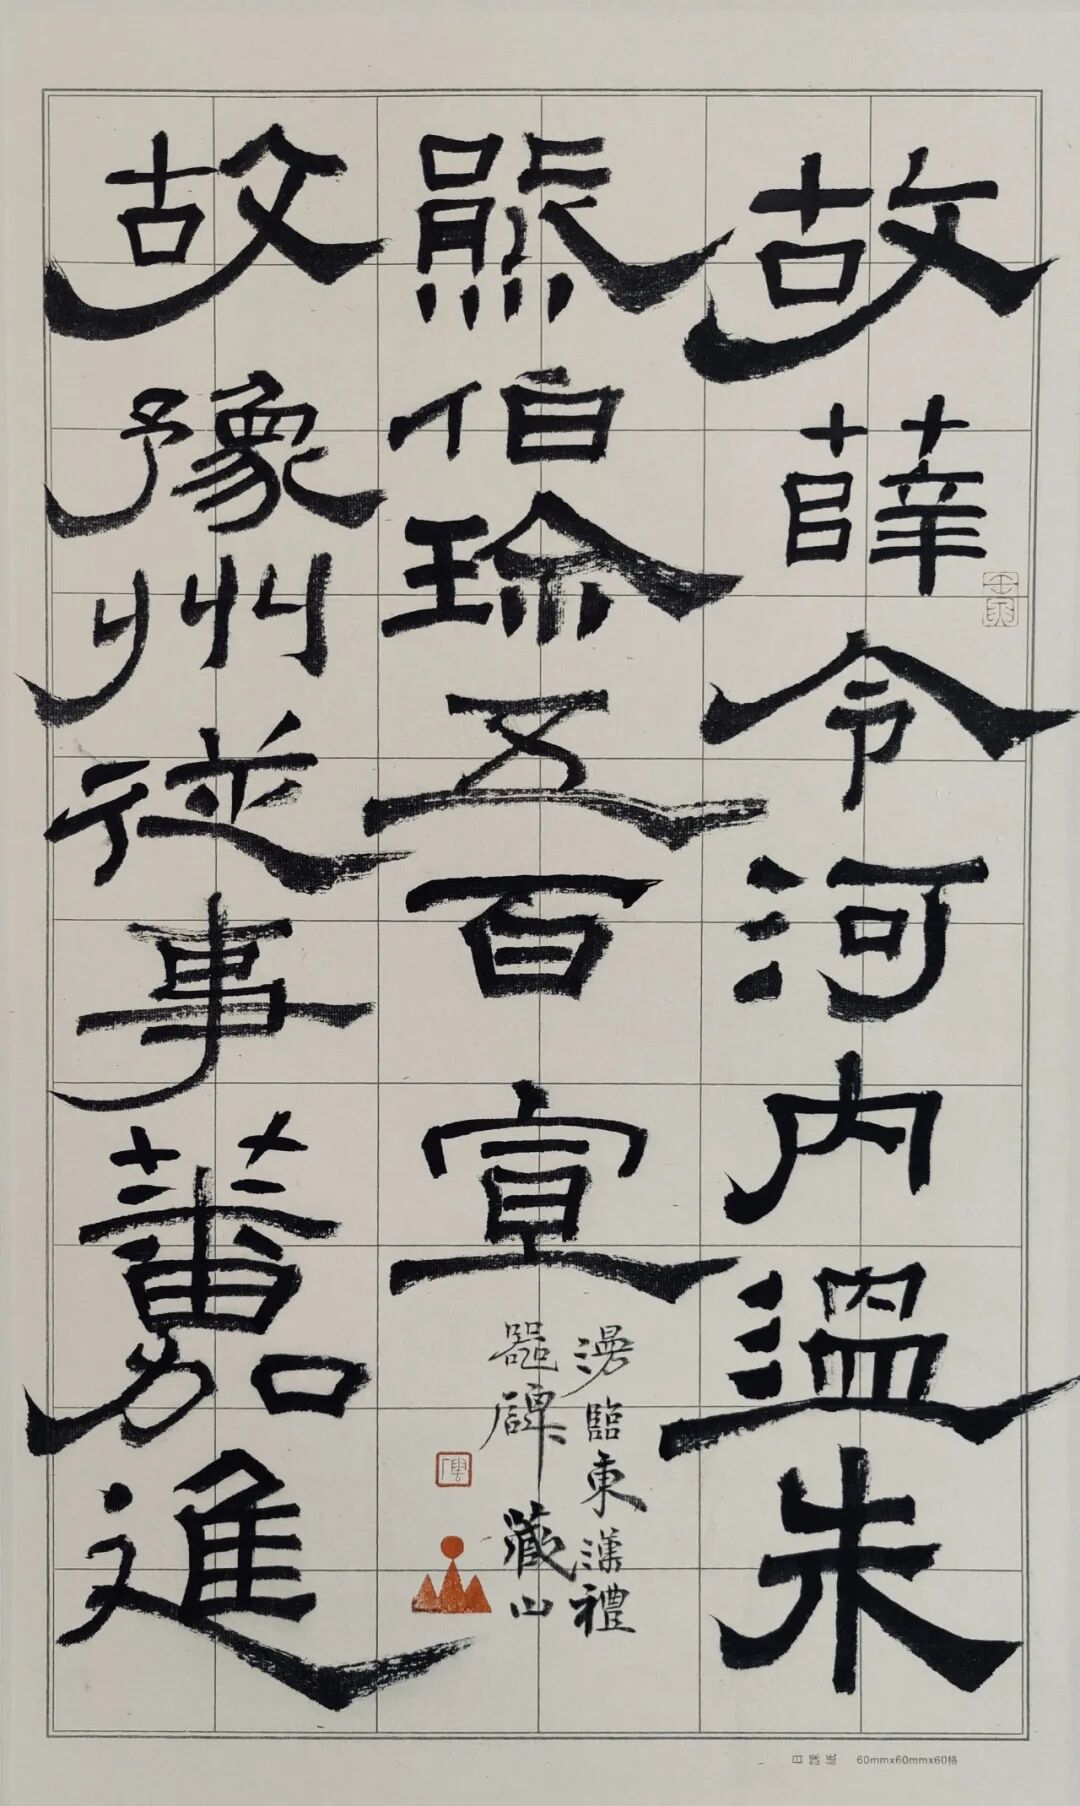 故薛令河内溫朱
熊伯珍五百宣
故豫州從事蕃加進
漫臨東漢禮
器碑 藏山
60mmx60mmx60格